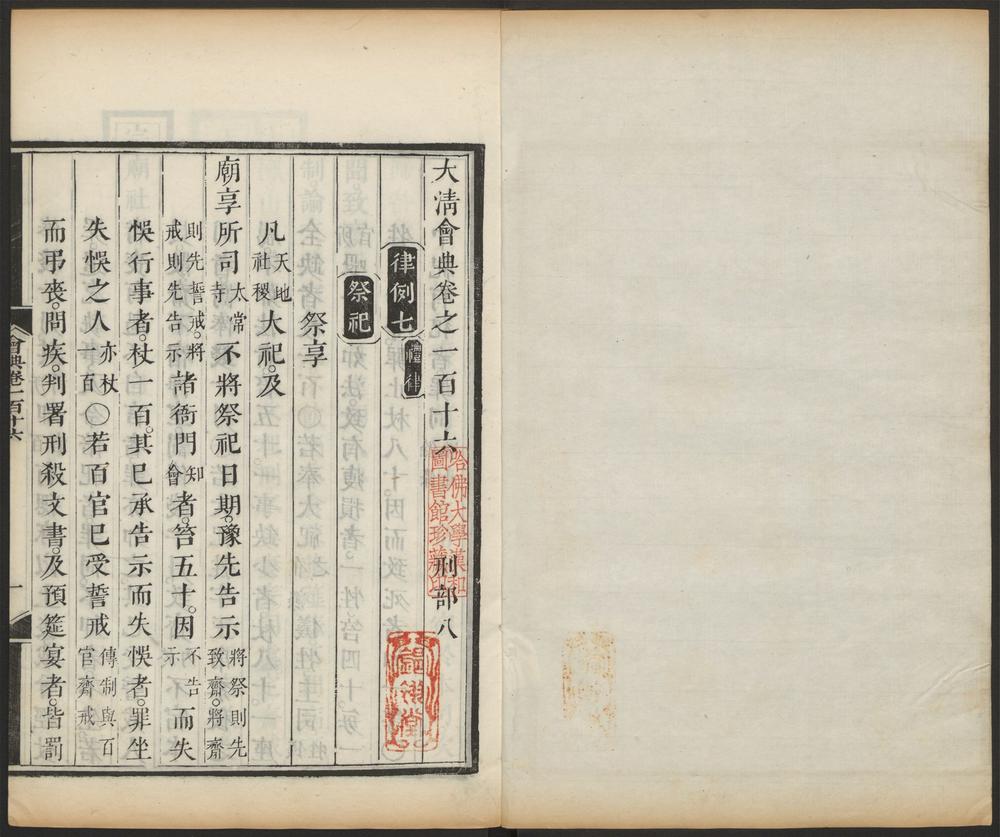 大清會典卷之一百十六 刑部八
哈佛大學漢和
圖書館珍藏印
律例七 禮律
祭祀
祭享
凡天地社稷大祀。及
廟享所司太常寺不將祭祀日期。豫先告示將祭則先致齋。將齋
則先誓戒。將戒則先告示諸衙門知會者。笞五十。因不告示而失
悞行事者。杖一百。其巳承告示而失悞者。罪坐
失悞之人亦杖一百○若百官巳受誓戒傳制與百官齋戒
而弔喪。問疾。判署刑殺文書。及預筵宴者。皆罰
會典卷一百十六
一